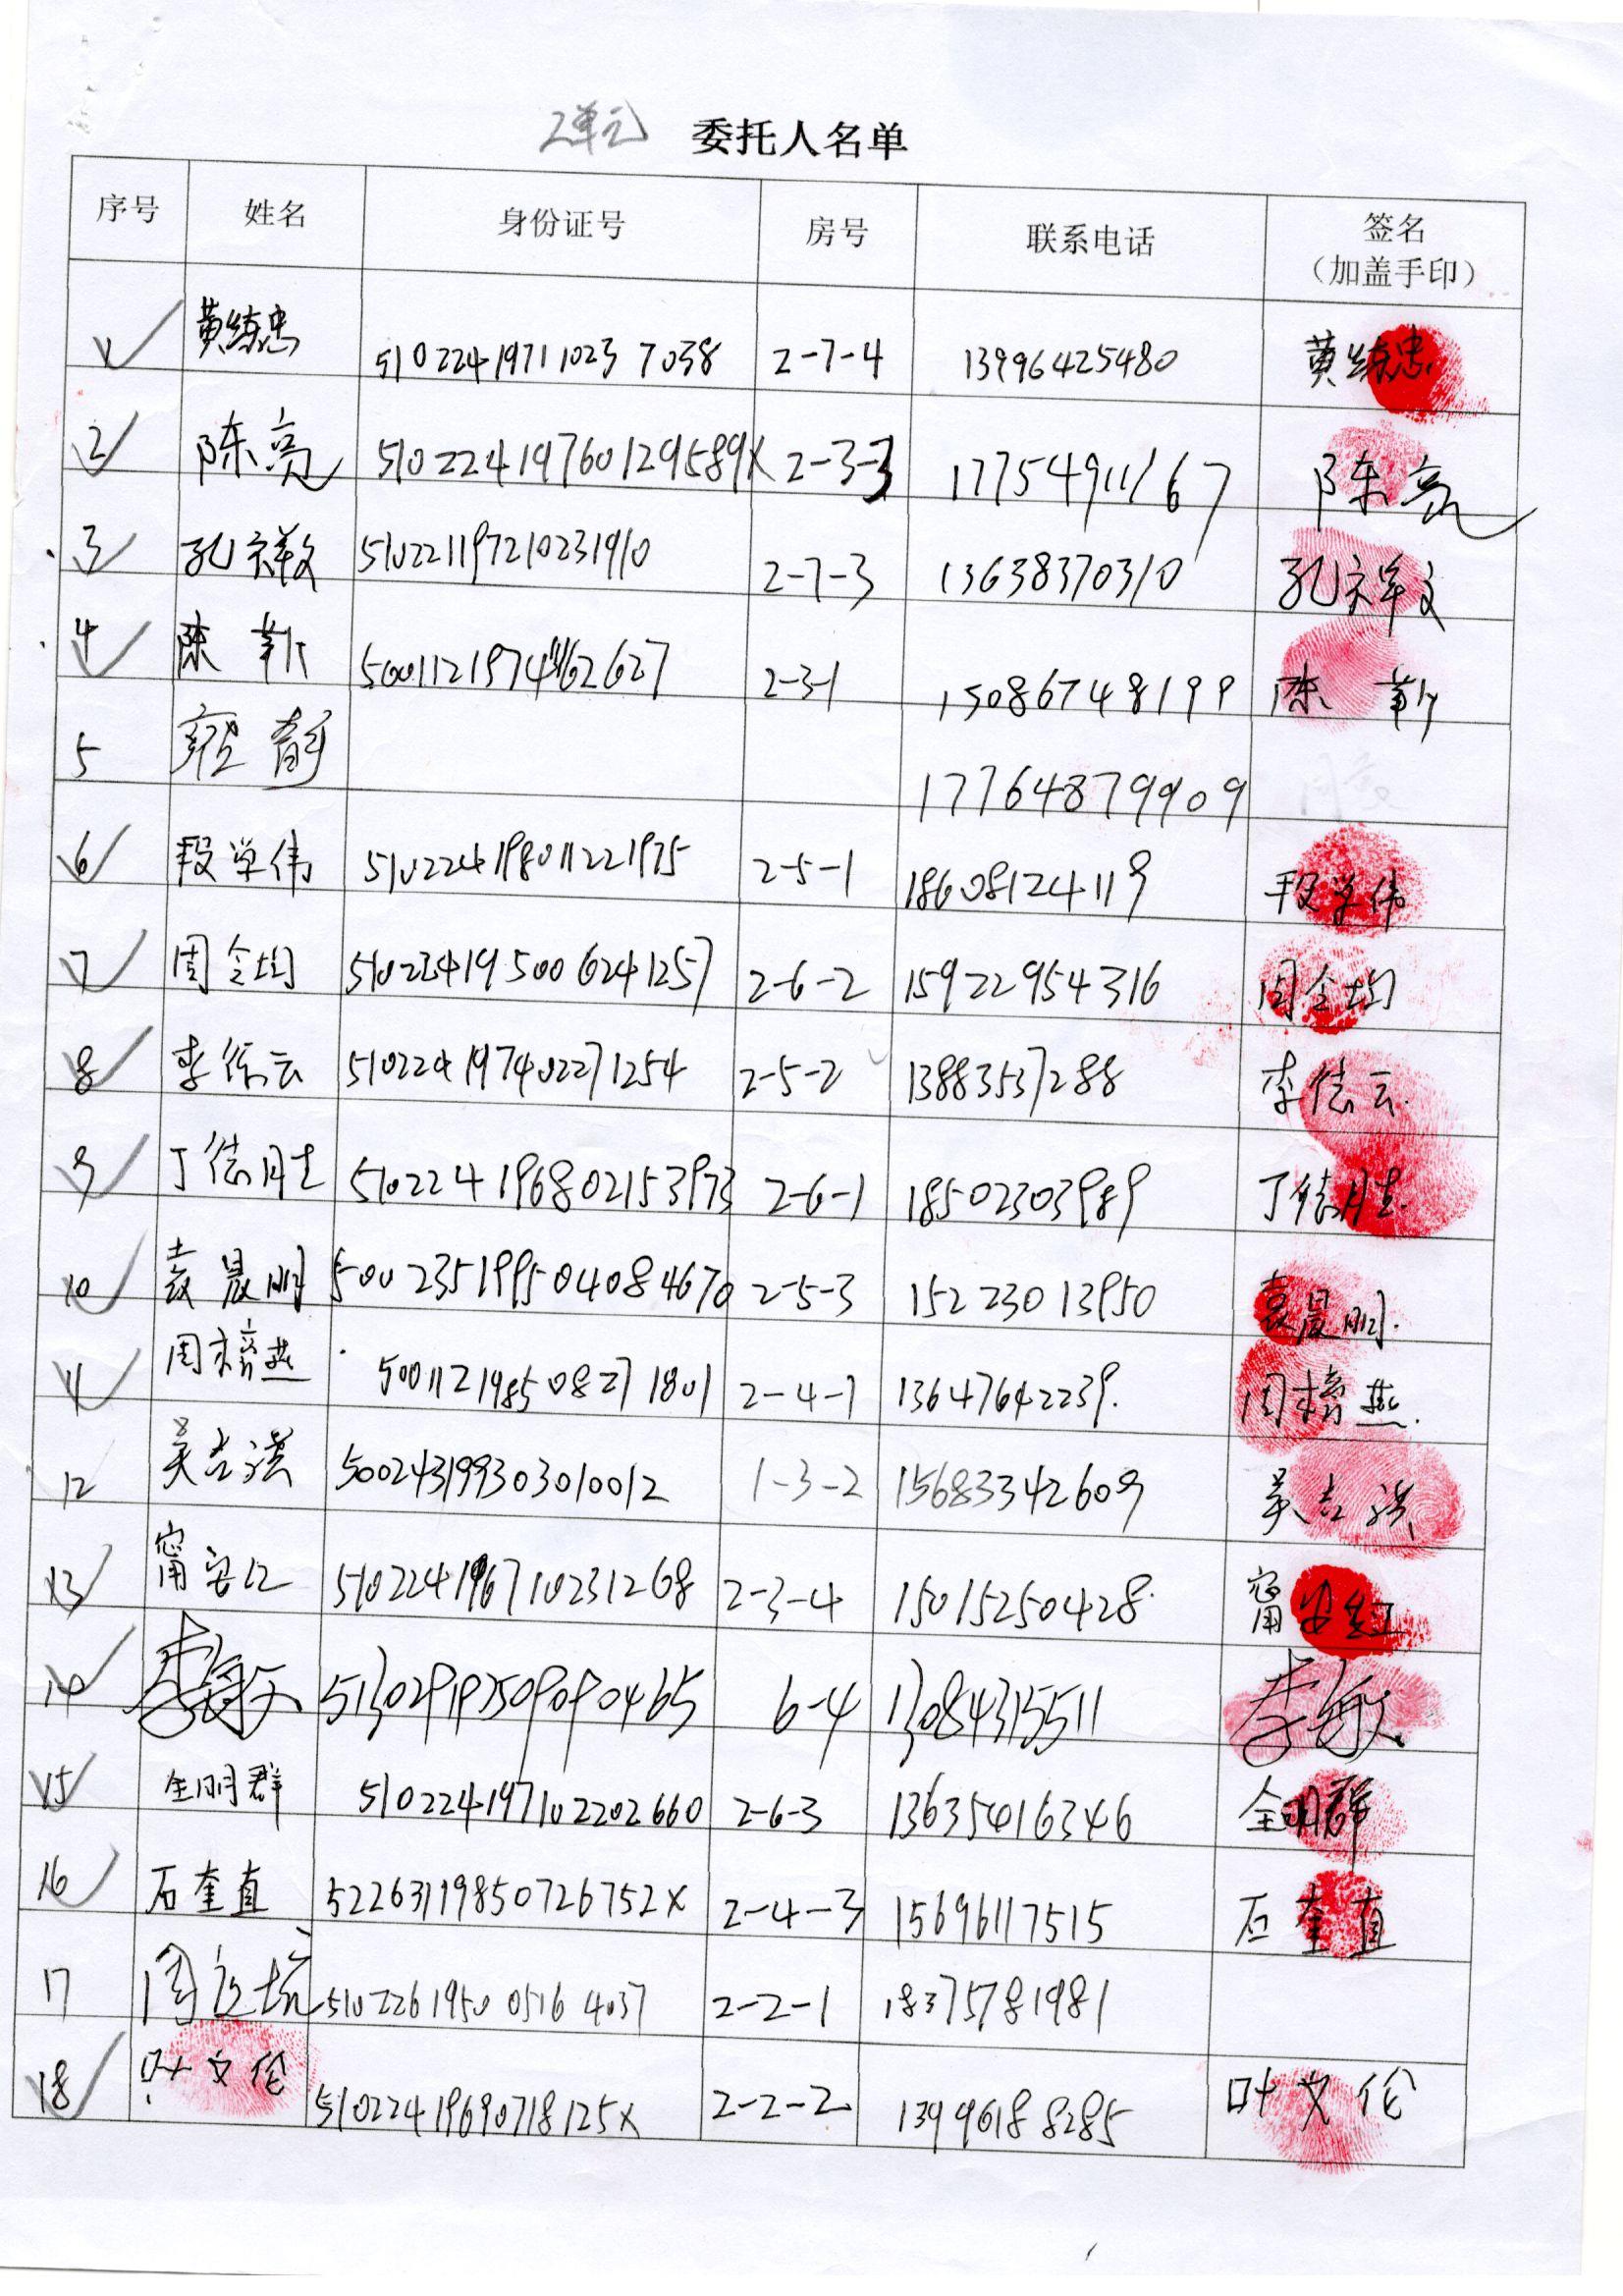 2单元 委托人名单
序号 姓名 身份证号 房号 联系电话 签名
（加盖手印）
1 黄练忠 510224197110237038 2-7-4 13996425480 黄练忠
2 陈亮 51022419760129589X 2-3-3 17754911167 陈亮
3 孔祥文 510221197210231910 2-7-3 13638370310 孔祥文
4 陈 2-3-1 15086748199 陈
5 静 17764879909
6 段学伟 510224198011221975 2-5-1 18608124119 段学伟
7 周全均 510224195006241257 2-6-2 15922954316 周全均
8 李信云 510224197402271254 2-5-2 13883537288 李信云
9 丁信胜 510224196802153973 2-6-1 18502303989 丁信胜
10 袁晟明 500235199504084670 2-5-3 15223013950 袁晟明
11 周榜燕 500112198508271801 2-4-1 13647642239 周榜燕
12 吴吉洪 500243199303010012 1-3-2 15683342609 吴吉洪
13 甯安红 510224196710231268 2-3-4 15015250428 甯安红
14 李敏 513029197509090465 6-4 13084315511 李敏
15 全明群 510224197102202660 2-6-3 13635416346 全明群
16 石奎直 52263119850726752X 2-4-3 15696117515 石奎直
17 周 510226195005164037 2-2-1 18375781981
18 叶文伦 51022419690718125X 2-2-2 13996188285 叶文伦